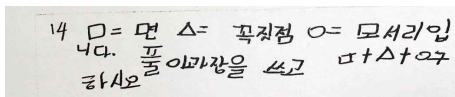 14 □= 면 △= 꼭짓점 ○= 모서리입
니다. 풀이과정을 쓰고 □+△+○구
하시오